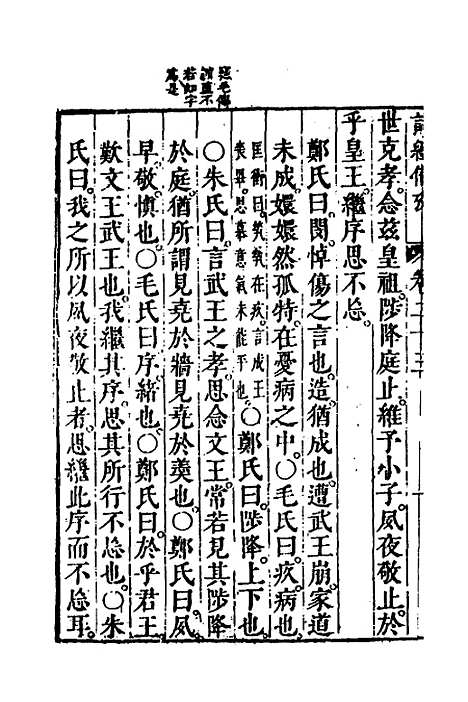 卷二十三
世克孝。念茲皇祖。陟降庭止。維予小子。夙夜敬止。於
乎皇王。繼序思不忘。
鄭氏曰。閔悼傷之言也。造猶成也。遭武王崩。家道
未成。嬛嬛然孤特。在憂病之中。○毛氏曰。疚。病也。
匡衡曰。煢煢在疚。言成王
喪畢。思慕意氣未能平也。○鄭氏曰。陟降。上下也。
○朱氏曰。言武王之孝。思念文王。常若見其陟降
於庭。猶所謂見堯於牆。見堯於羮也。○鄭氏曰。夙
早。敬慎也。○毛氏曰。序。緒也。○鄭氏曰。於乎君王。
歎文王武王也。我繼其序。思其所行不忘也。○朱
氏曰。我之所以夙夜敬止者。思繼此序而不忘耳。
庭毛傳
訓直不
若如字
爲是